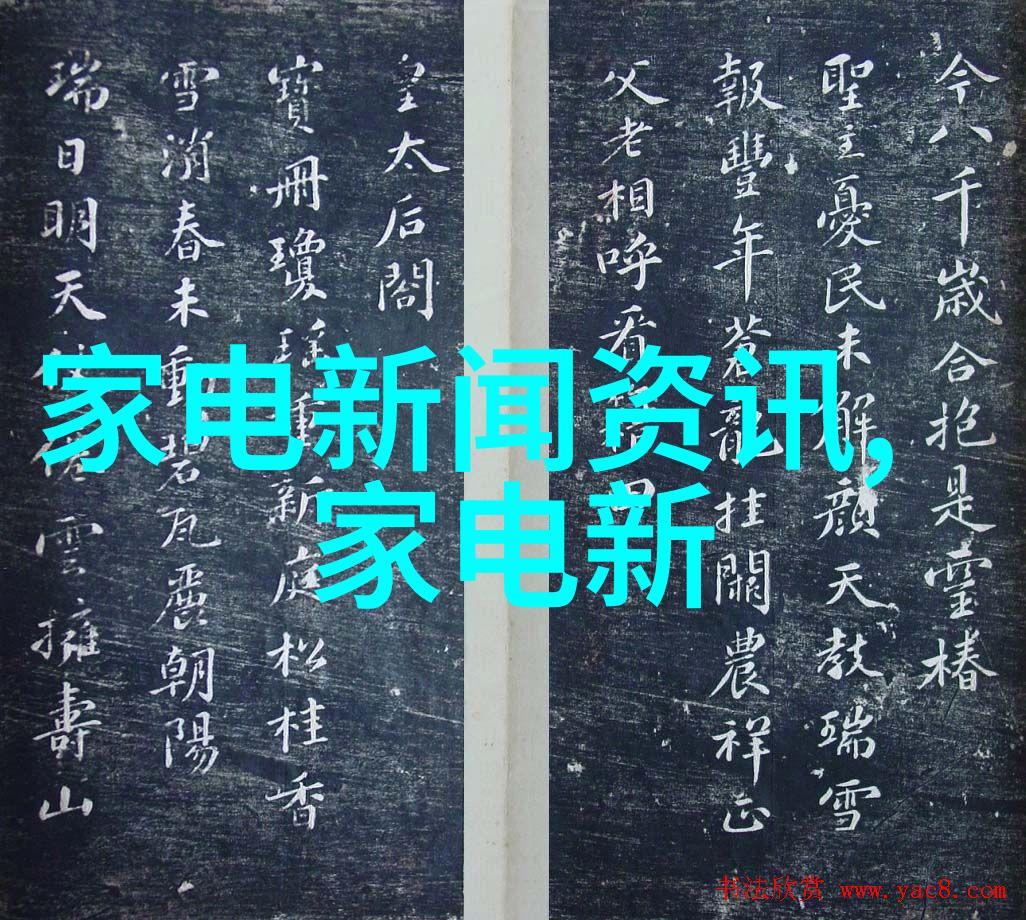 今八千歳合抱是靈椿
聖主憂民未解顏天教瑞雪
報豐年蒼龍挂闕農祥正
父老相呼看
皇太后閣
寶冊瓊瑤重新庭松桂香
雪消春未動碧瓦麗朝陽
瑞日明天雲擁壽山
家电新闻资讯,
家电新
书法欣赏 www.yac8.com